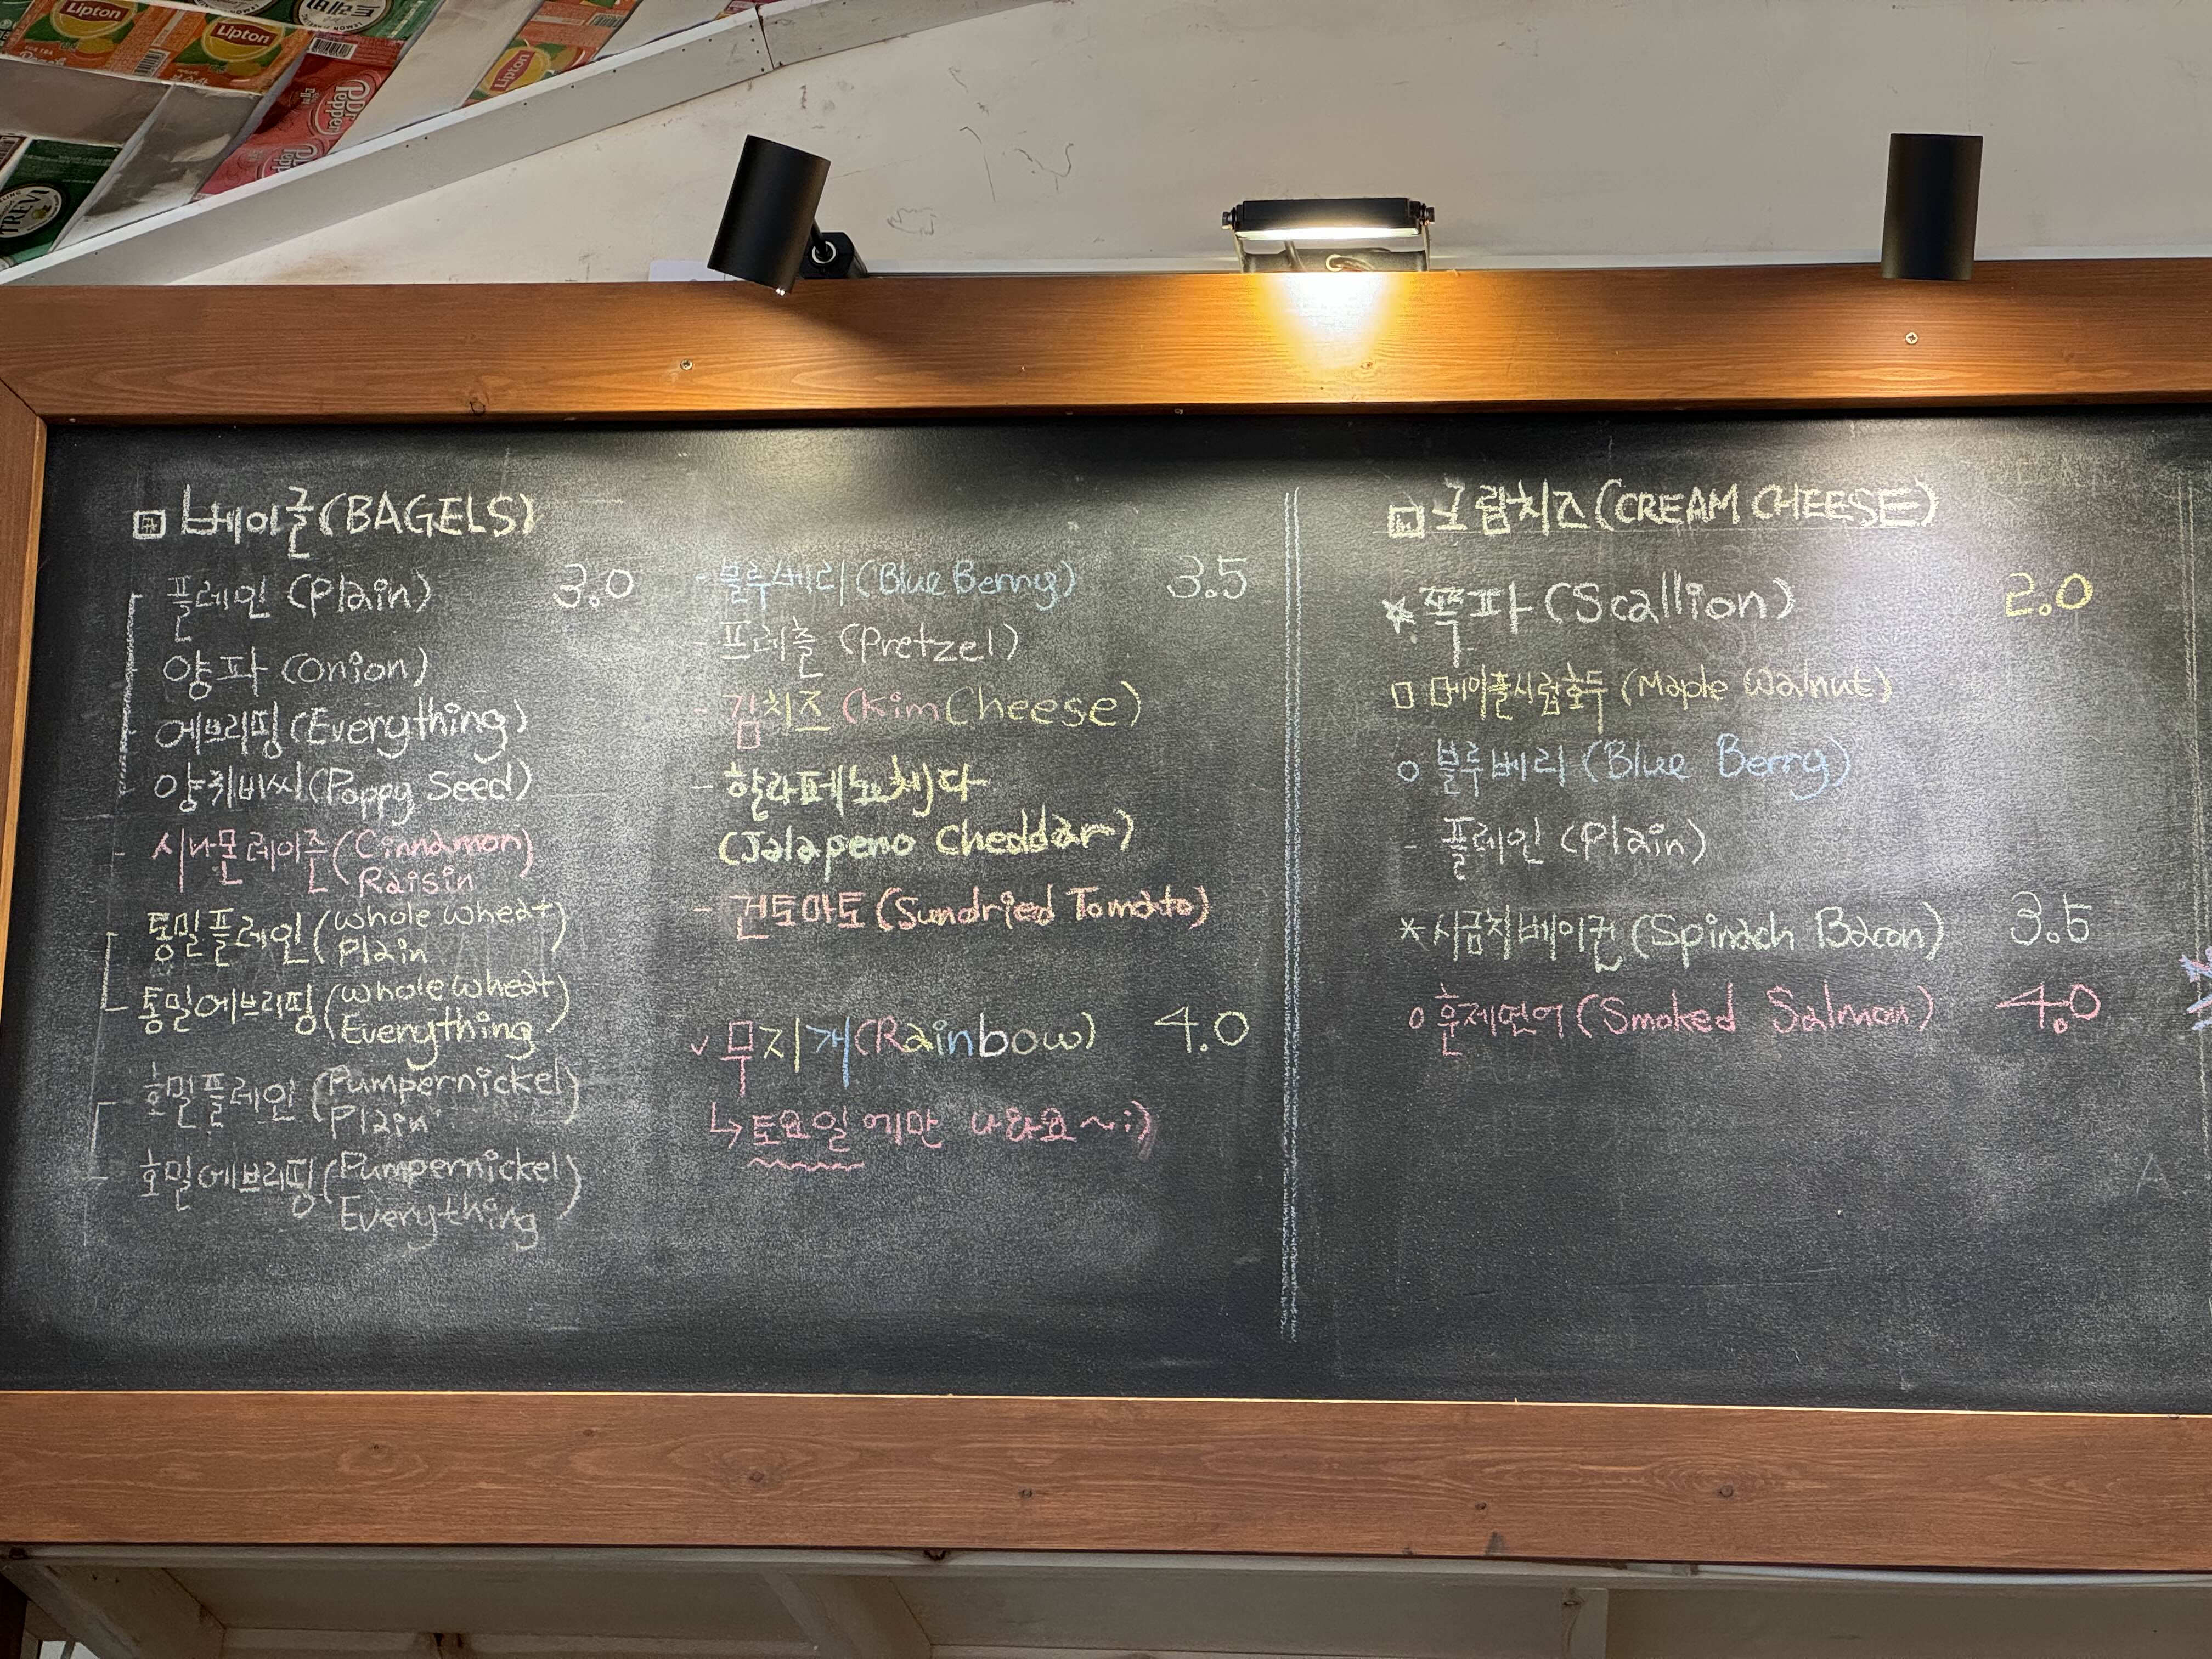 Lipton
Lipton
Lipton
Dr Pepper
TREVI
베이글(BAGELS)
플레인 (Plain) 3.0
양파 (Onion)
에브리핑(Everything)
양귀비씨(Poppy Seed)
시나몬레이즌(Cinnamon
Raisin)
통밀플레인(Whole Wheat
Plain)
통밀에브리핑(Whole Wheat
Everything)
호밀플레인(Pumpernickel
Plain)
호밀에브리핑(Pumpernickel
Everything)
- 블루베리(Blue Berry) 3.5
프레즐 (Pretzel)
- 김치즈(KimCheese)
- 할라페뇨체다
(Jalapeno Cheddar)
- 건토마토(Sundried Tomato)
✓ 무지개(Rainbow) 4.0
↳ 토요일에만 나와요~:)
크림치즈(CREAM CHEESE)
* 쪽파(Scallion) 2.0
□ 메이플시럽호두(Maple Walnut)
○ 블루베리(Blue Berry)
- 플레인(Plain)
* 시금치베이컨(Spinach Bacon) 3.5
○ 훈제연어(Smoked Salmon) 4.0